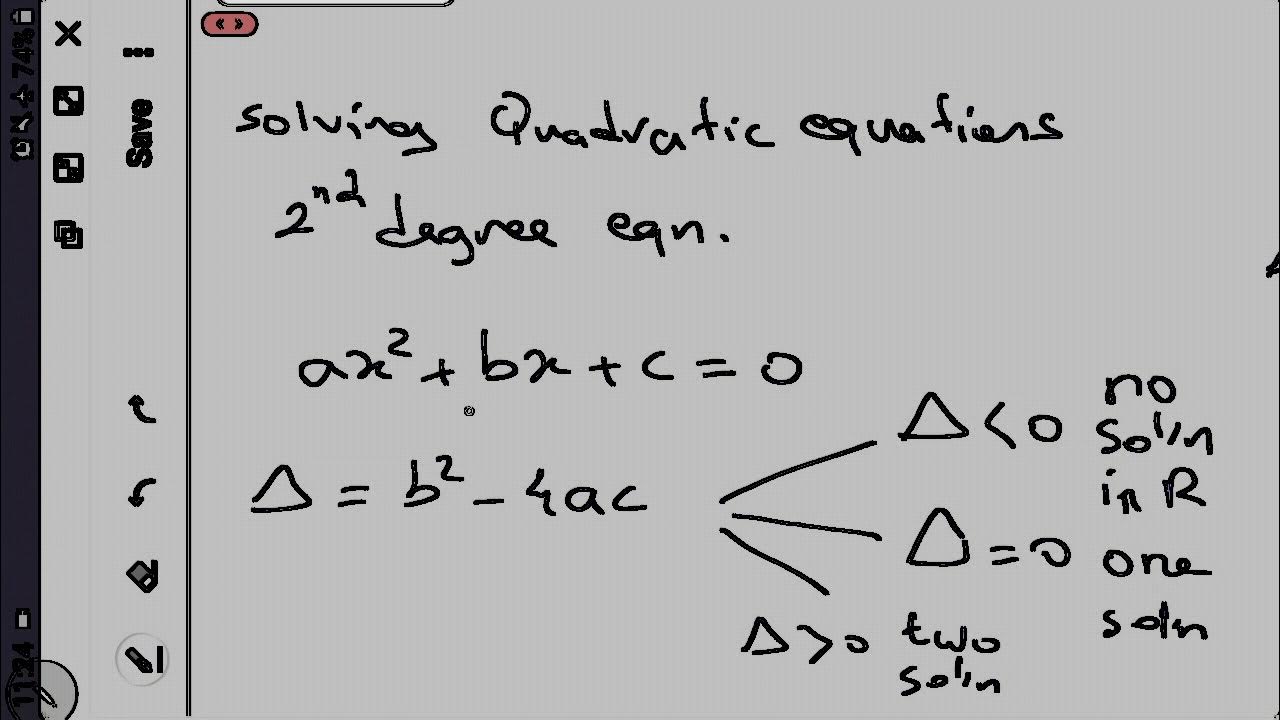 solving Quadratic equations
2nd degree eqn.
ax² + bx + c = 0
Δ = b² - 4ac
Δ < 0 no
sol'n
in R
Δ = 0 one
soln
Δ > 0 two
sol'n
Save
74%
11:24